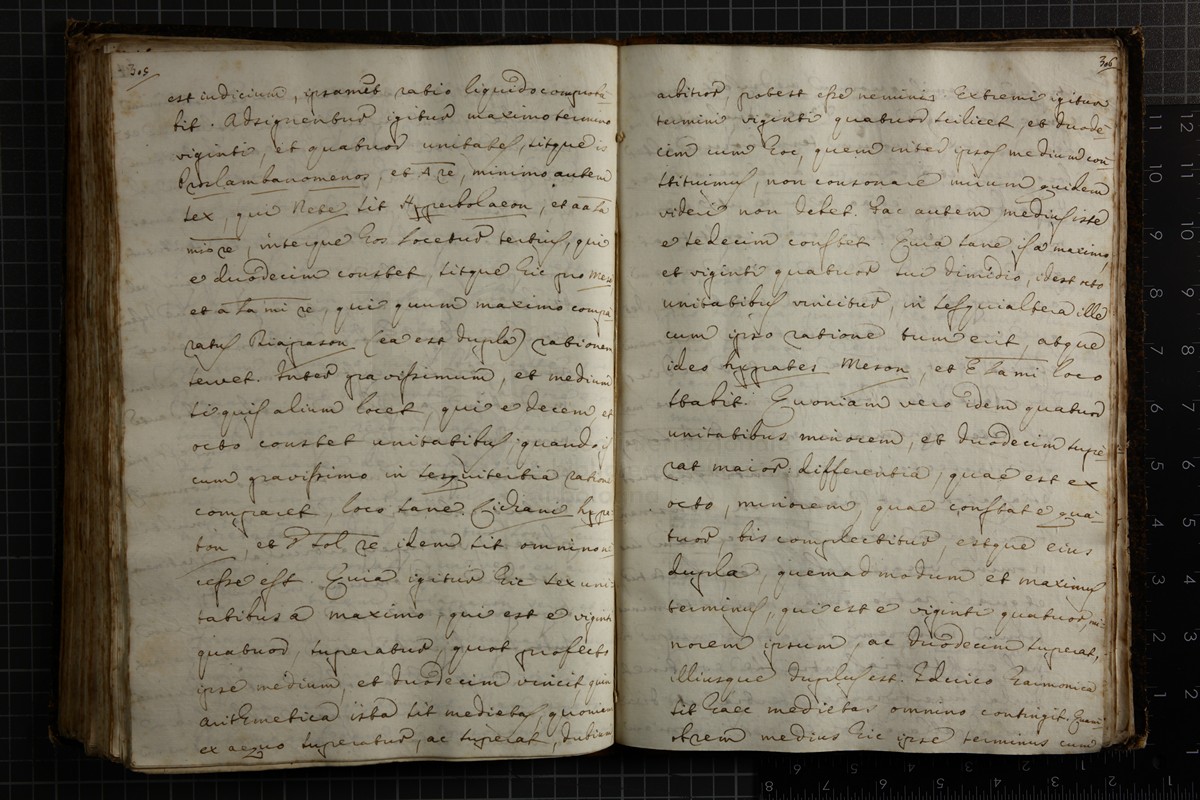 305
est indicium, ipsamet ratio liquido compro-
bit. Adsignentur igitur maximo termino
viginti, et quatuor unitates, sitque is
Proslambanomenos, et A re, minimo autem
sex, qui Nete sit Hyperbolaeon, et aa la
mi re, interque hos locetur tertius, qui
e duodecim constet, sitque hic pro Mese
et a la mi re, qui quum maximo compa-
ratus Diapason (ea est dupla) rationem
servet. Inter gravissimum, et medium
si quis alium locet, qui e decem et
octo constet unitatibus, quando is
cum gravissimo in sesquitertia ratione
comparet, loco sane Lidiani hypa-
ton, et D sol re idem sit omnino ne-
cesse est. Quia igitur hic sex uni-
tatibus a maximo, qui est e viginti
quatuor, superatur, quot profecto
ipse medium, et duodecim vincit, quin
arithmetica ista sit medietas, quoniam
ex aequo superatur, ac superat, dubium
306
arbitror, potest esse nemini. Extremi igitur
termini viginti quatuor scilicet, et duode-
cim cum hoc, quem inter ipsos medium con-
stituimus, non consonare mirum quidem
videri non debet. Fac autem medius iste
e sedecim constet. Quia sane is a maximo,
et viginti quatuor sui dimidio, idest octo
unitatibus vincitur, in sesquialtera ille
cum ipso ratione tum erit, atque
ideo hypates Meson, et E la mi loco
stabit. Quoniam vero idem quatuor
unitatibus minorem, et duodecim supe-
rat maior differentia, quae est ex
octo, minorem, quae constat e qua-
tuor, bis complectitur, estque eius
dupla, quemadmodum et maximus
terminus, qui est e viginti quatuor, mi-
norem ipsum, ac duodecim superat,
illiusque duplus est. Educo harmonica
sit haec medietas omnino contingit. Quam-
obrem medius hic ipse terminus cum